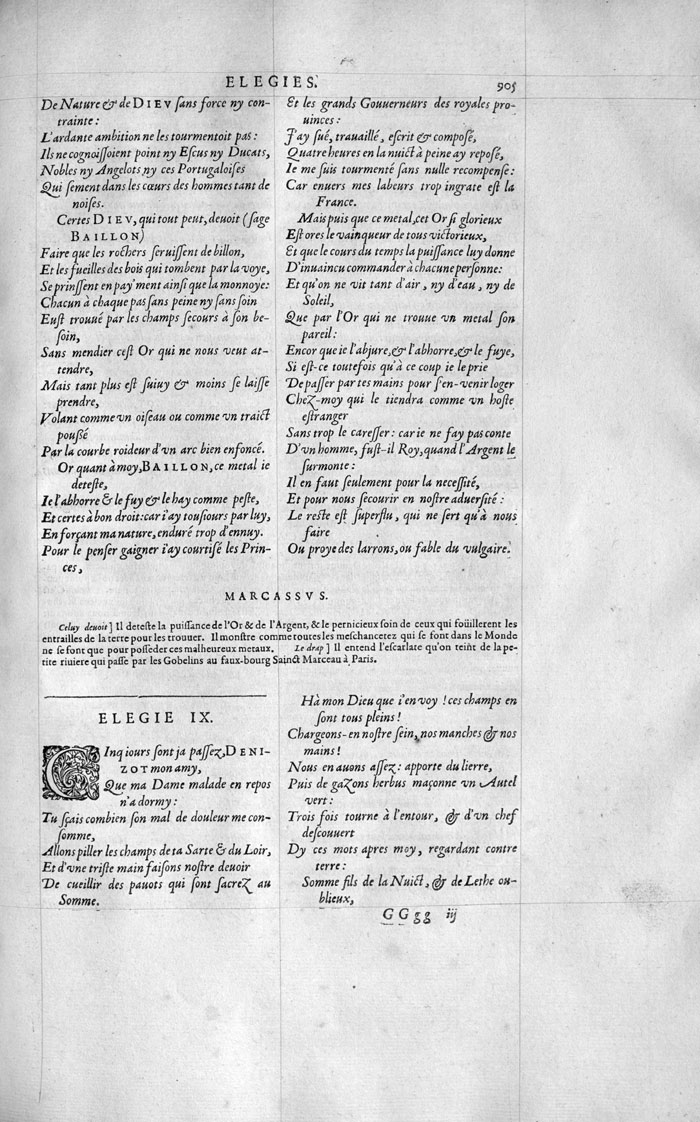 ELEGIES.
905
De Nature & de DIEV sans force ny con-
trainte :
L'ardante ambition ne les tourmentoit pas :
Ils ne cognoissoient point ny Escus ny Ducats,
Nobles ny Angelots ny ces Portugaloises
Qui sement dans les cœurs des hommes tant de
noises.
Certes DIEV, qui tout peut, deuoit (sage
BAILLON)
Faire que les rochers seruissent de billon,
Et les fueilles des bois qui tombent par la voye,
Se prinssent en pay'ment ainsi que la monnoye:
Chacun à chaque pas sans peine ny sans soin
Eust trouué par les champs secours à son be-
soin,
Sans mendier cest Or qui ne nous veut at-
tendre,
Mais tant plus est suiuy & moins se laisse
prendre,
Volant comme vn oiseau ou comme vn traict
poussé
Par la courbe roideur d'vn arc bien enfoncé.
Or quant à moy, BAILLON, ce metal ie
deteste,
Ie l'abhorre & le fuy & le hay comme peste,
Et certes à bon droit: car i'ay tousiours par luy,
En forçant ma nature, enduré trop d'ennuy.
Pour le penser gaigner i'ay courtisé les Prin-
ces,
Et les grands Gouuerneurs des royales pro-
uinces :
J'ay sué, trauaillé, escrit & composé,
Quatre heures en la nuict à peine ay reposé,
Ie me suis tourmenté sans nulle recompense:
Car enuers mes labeurs trop ingrate est la
France.
Mais puis que ce metal, cet Or si glorieux
Est ores le vainqueur de tous victorieux,
Et que le cours du temps la puissance luy donne
D'inuaincu commander à chacune personne:
Et qu'on ne vit tant d'air, ny d'eau, ny de
Soleil,
Que par l'Or qui ne trouue vn metal son
pareil :
Encor que ie l'abjure, & l'abhorre, & le fuye,
Si est-ce toutefois qu'à ce coup ie le prie
De passer par tes mains pour s'en-venir loger
Chez-moy qui le tiendra comme vn hoste
estranger
Sans trop le caresser : car ie ne fay pas conte
D'vn homme, fust-il Roy, quand l'Argent le
surmonte :
Il en faut seulement pour la necessité,
Et pour nous secourir en nostre aduersité :
Le reste est superflu, qui ne sert qu'à nous
faire
Ou proye des larrons, ou fable du vulgaire.
MARCASSVS.
Celuy deuoit ] Il deteste la puissance de l'Or & de l'Argent, & le pernicieux soin de ceux qui foüillerent les
entrailles de la terre pour les trouuer. Il monstre comme toutes les meschancetez qui se font dans le Monde
ne se font que pour posseder ces malheureux metaux. Le drap ] Il entend l'escarlate qu'on teint de la pe-
tite riuiere qui passe par les Gobelins au faux-bourg Sainct Marceau à Paris.
ELEGIE IX.
CInq iours sont ja passez, DENI-
ZOT mon amy,
Que ma Dame malade en repos
n'a dormy :
Tu sçais combien son mal de douleur me con-
somme,
Allons piller les champs de ta Sarte & du Loir,
Et d'vne triste main faisons nostre deuoir
De cueillir des pauots qui sont sacrez au
Somme.
Hà mon Dieu que i'en voy ! ces champs en
sont tous pleins !
Chargeons-en nostre sein, nos manches & nos
mains !
Nous en auons assez : apporte du lierre,
Puis de gazons herbus maçonne vn Autel
vert :
Trois fois tourne à l'entour, & d'vn chef
descouuert
Dy ces mots apres moy, regardant contre
terre :
Somme fils de la Nuict, & de Lethe ou-
blieux,
GGgg iij